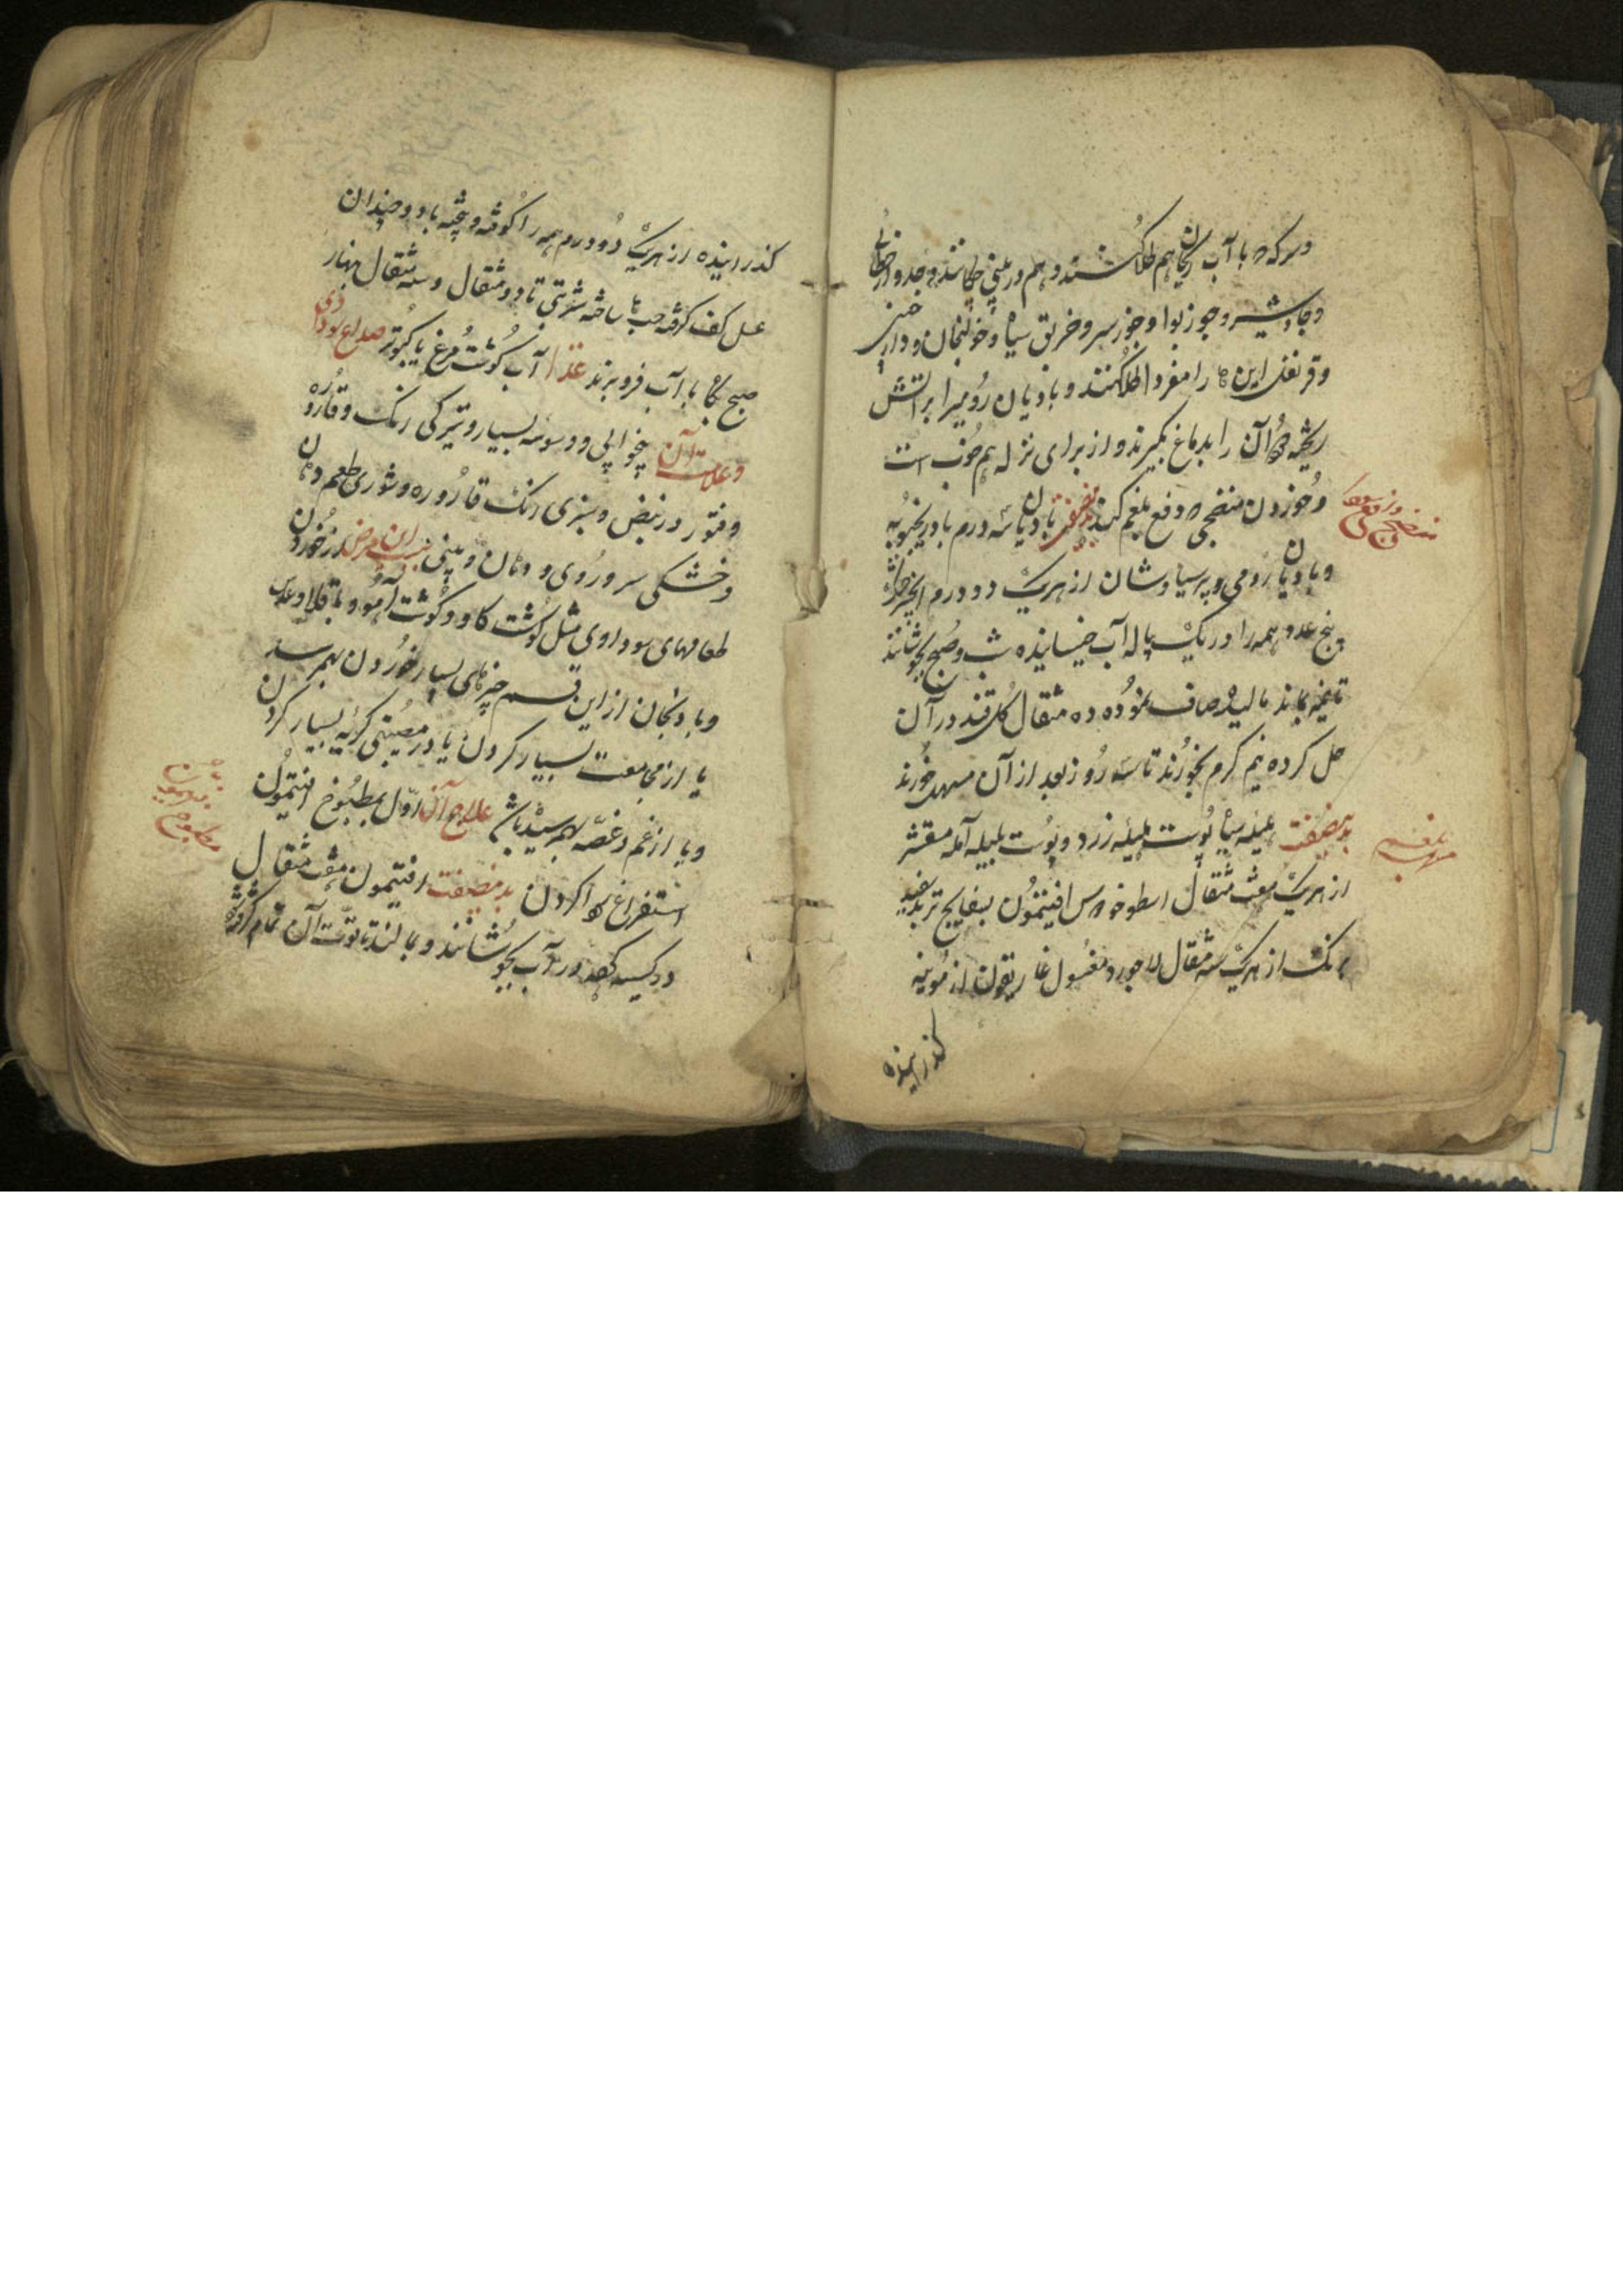 و سرکه با آب ریحان هم طلا کنند و هم در بینی چکانند و جدوار خطایی
و جاوشیر و جوزبوا و جوز سرو و خربق سیاه و خولنجان و دارچینی
و قرنفل این ها را مفردا طلا کنند و بادیان رومی را بر آتش
ریخته دود آن را بدماغ بگیرند و از برای نزله هم خوب است
و خوردن منضجی که دفع بلغم کند بدین صفت بادیان سه درم بادرنجبویه
و بادیان رومی و پرسیاوشان از هریک دو درم انجیر
پنج عدد همه را در یک پیاله آب خیسانیده شب و صبح بجوشانند
تا نیمه بماند مالیده صاف نموده ده مثقال گل قند در آن
حل کرده نیم گرم بخورند تا سه روز بعد از آن مسهل خورند
بدین صفت هلیله سیاه پوست هلیله زرد و پوست بلیله آمله مقشر
از هریک هفت مثقال اسطوخودوس افیتمون بسفایج تربد سفید
از هریک سه مثقال لاجورد مغسول غاریقون از موینه
گذرانیده
منضج
بلغم
مسهل
گذرانیده از هریک دو درم همه را کوفته و پخته با دو چندان
عسل کف گرفته حب ها ساخته شربتی تا دو مثقال و سه مثقال نهار
صبح گاه با آب فرو برند غذا آب گوشت مرغ یا کبوتر صداع سوداوی
و علامت آن بیخوابی و وسوسه بسیار و تیرگی رنگ و قاروره
و فتور در نبض و سبزی رنگ قاروره و شوری طعم دهان
و خشکی سر و روی و دهان و بینی سبب این مرض از خوردن
طعامهای سوداوی مثل گوشت گاو و گوشت آهو و باقلا و عدس
و بادنجان از این قسم چیزهای بسیار خوردن بهم رسد
یا از مجامعت بسیار کردن یا در مصیبتی گریه بسیار کردن
و یا از غم و غصه بهم رسیده باشد علاج آن اول بمطبوخ افیتمون
استفراغ سودا کردن بدین صفت افیتمون هفت مثقال
در کیسه کرده در آب بجوشانند و بمالند تا قوت آن تمام
مطبوخ